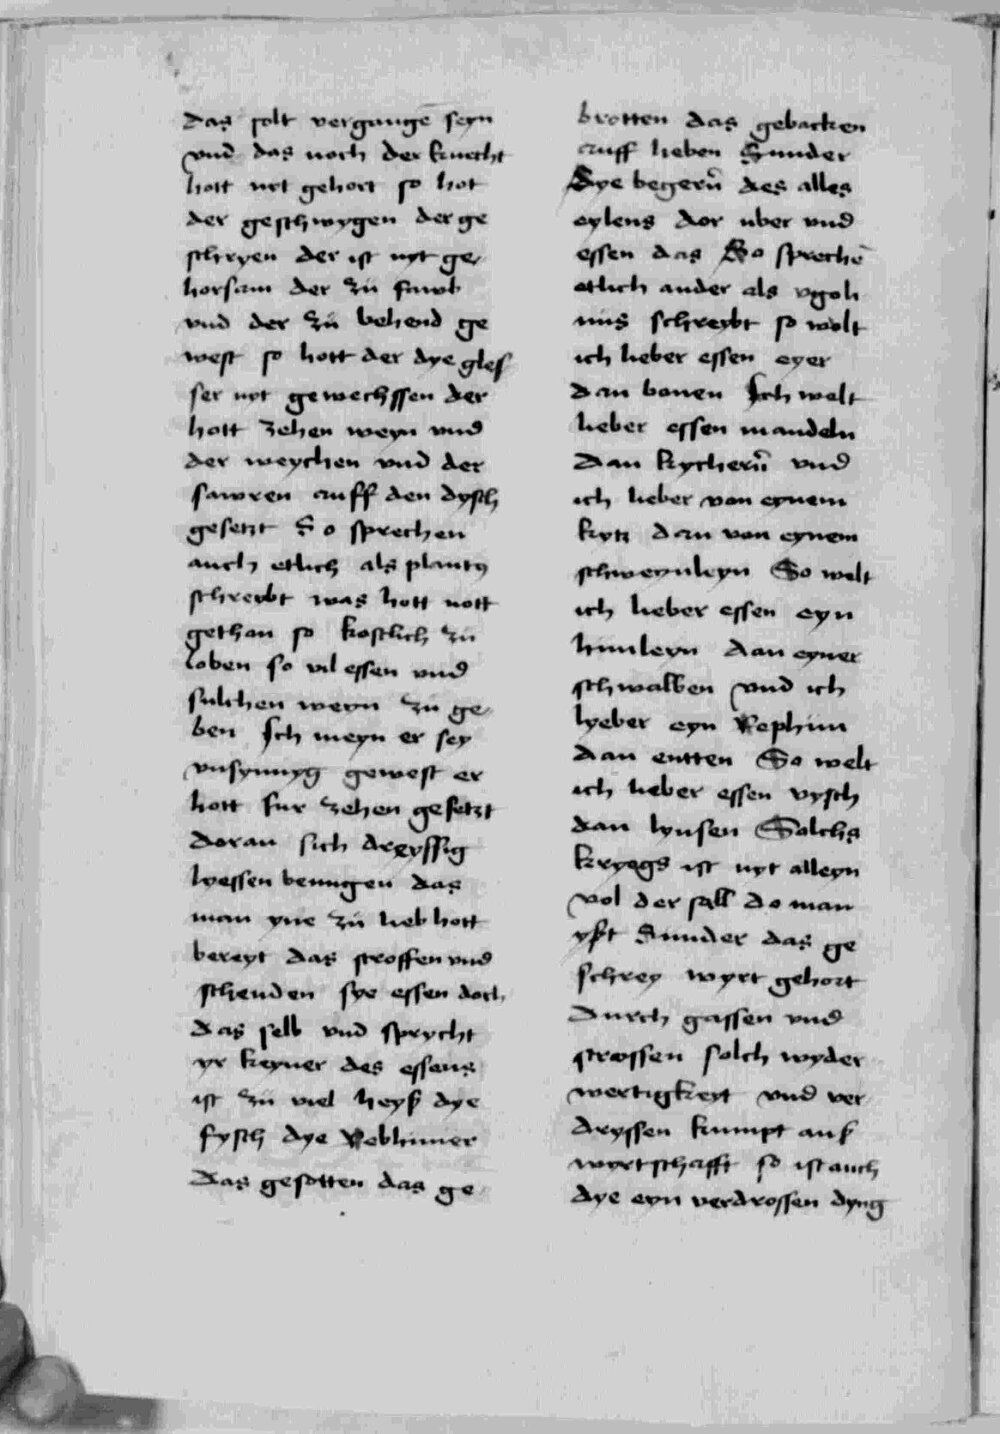 das solt vergangē seyn
vnd das noch der knecht
hott nit gehort so hot
der geschwygen der ge
schryen der ist nyt ge
horsam der zü fawl
vnd der zü behend ge
west so hott der dye gles
ser nyt gewechssen der
hott zehen weyn vnd
der weychen vnd der
sawren auff den dysch
gesetzt So sprechen
auch etlich als plantꝰ
schreybt was hott nott
gethan so kostlich zü
loben so vil essen vnd
sulchen weyn zü ge
ben Ich meyn er sey
vnsynnyg gewest er
hott fur zehen gesetzt
doran sich dreyssig
lyessen benugen das
man yne zü lieb hott
bereyt das stroffen vnd
schenden sye essen doch
das selb vnd sprycht
yr keyner des essens
ist zü viel heyß dye
fysch dye Rebhuner
das gesotten das ge
brotten das gebacken
auff heben Sunder
Sye begern̄ des alles
eylens dor vber vnd
essen das So sprechē
etlich ander als vgoli
nus schreybt so wolt
ich lieber essen eyer
dan bonen Ich welt
lieber essen mandeln
dan kychern̄ vnd
ich lieber von eynem
kytz dan von eynem
schweynleyn So welt
ich lieber essen eyn
hunleyn dan eyner
schwalben vnd ich
lyeber eyn Rephun
dan entten So welt
ich lieber essen vysch
dan lynsen Solchs
kryegs ist nyt alleyn
vol der sall do man
yßt Sunder das ge
schrey wyrt gehort
durch gassen vnd
strossen solch wyder
wertigkeyt vnd ver
dryssen kumpt auß
wyrtschafft so ist auch
dye eyn verdrossen dyng